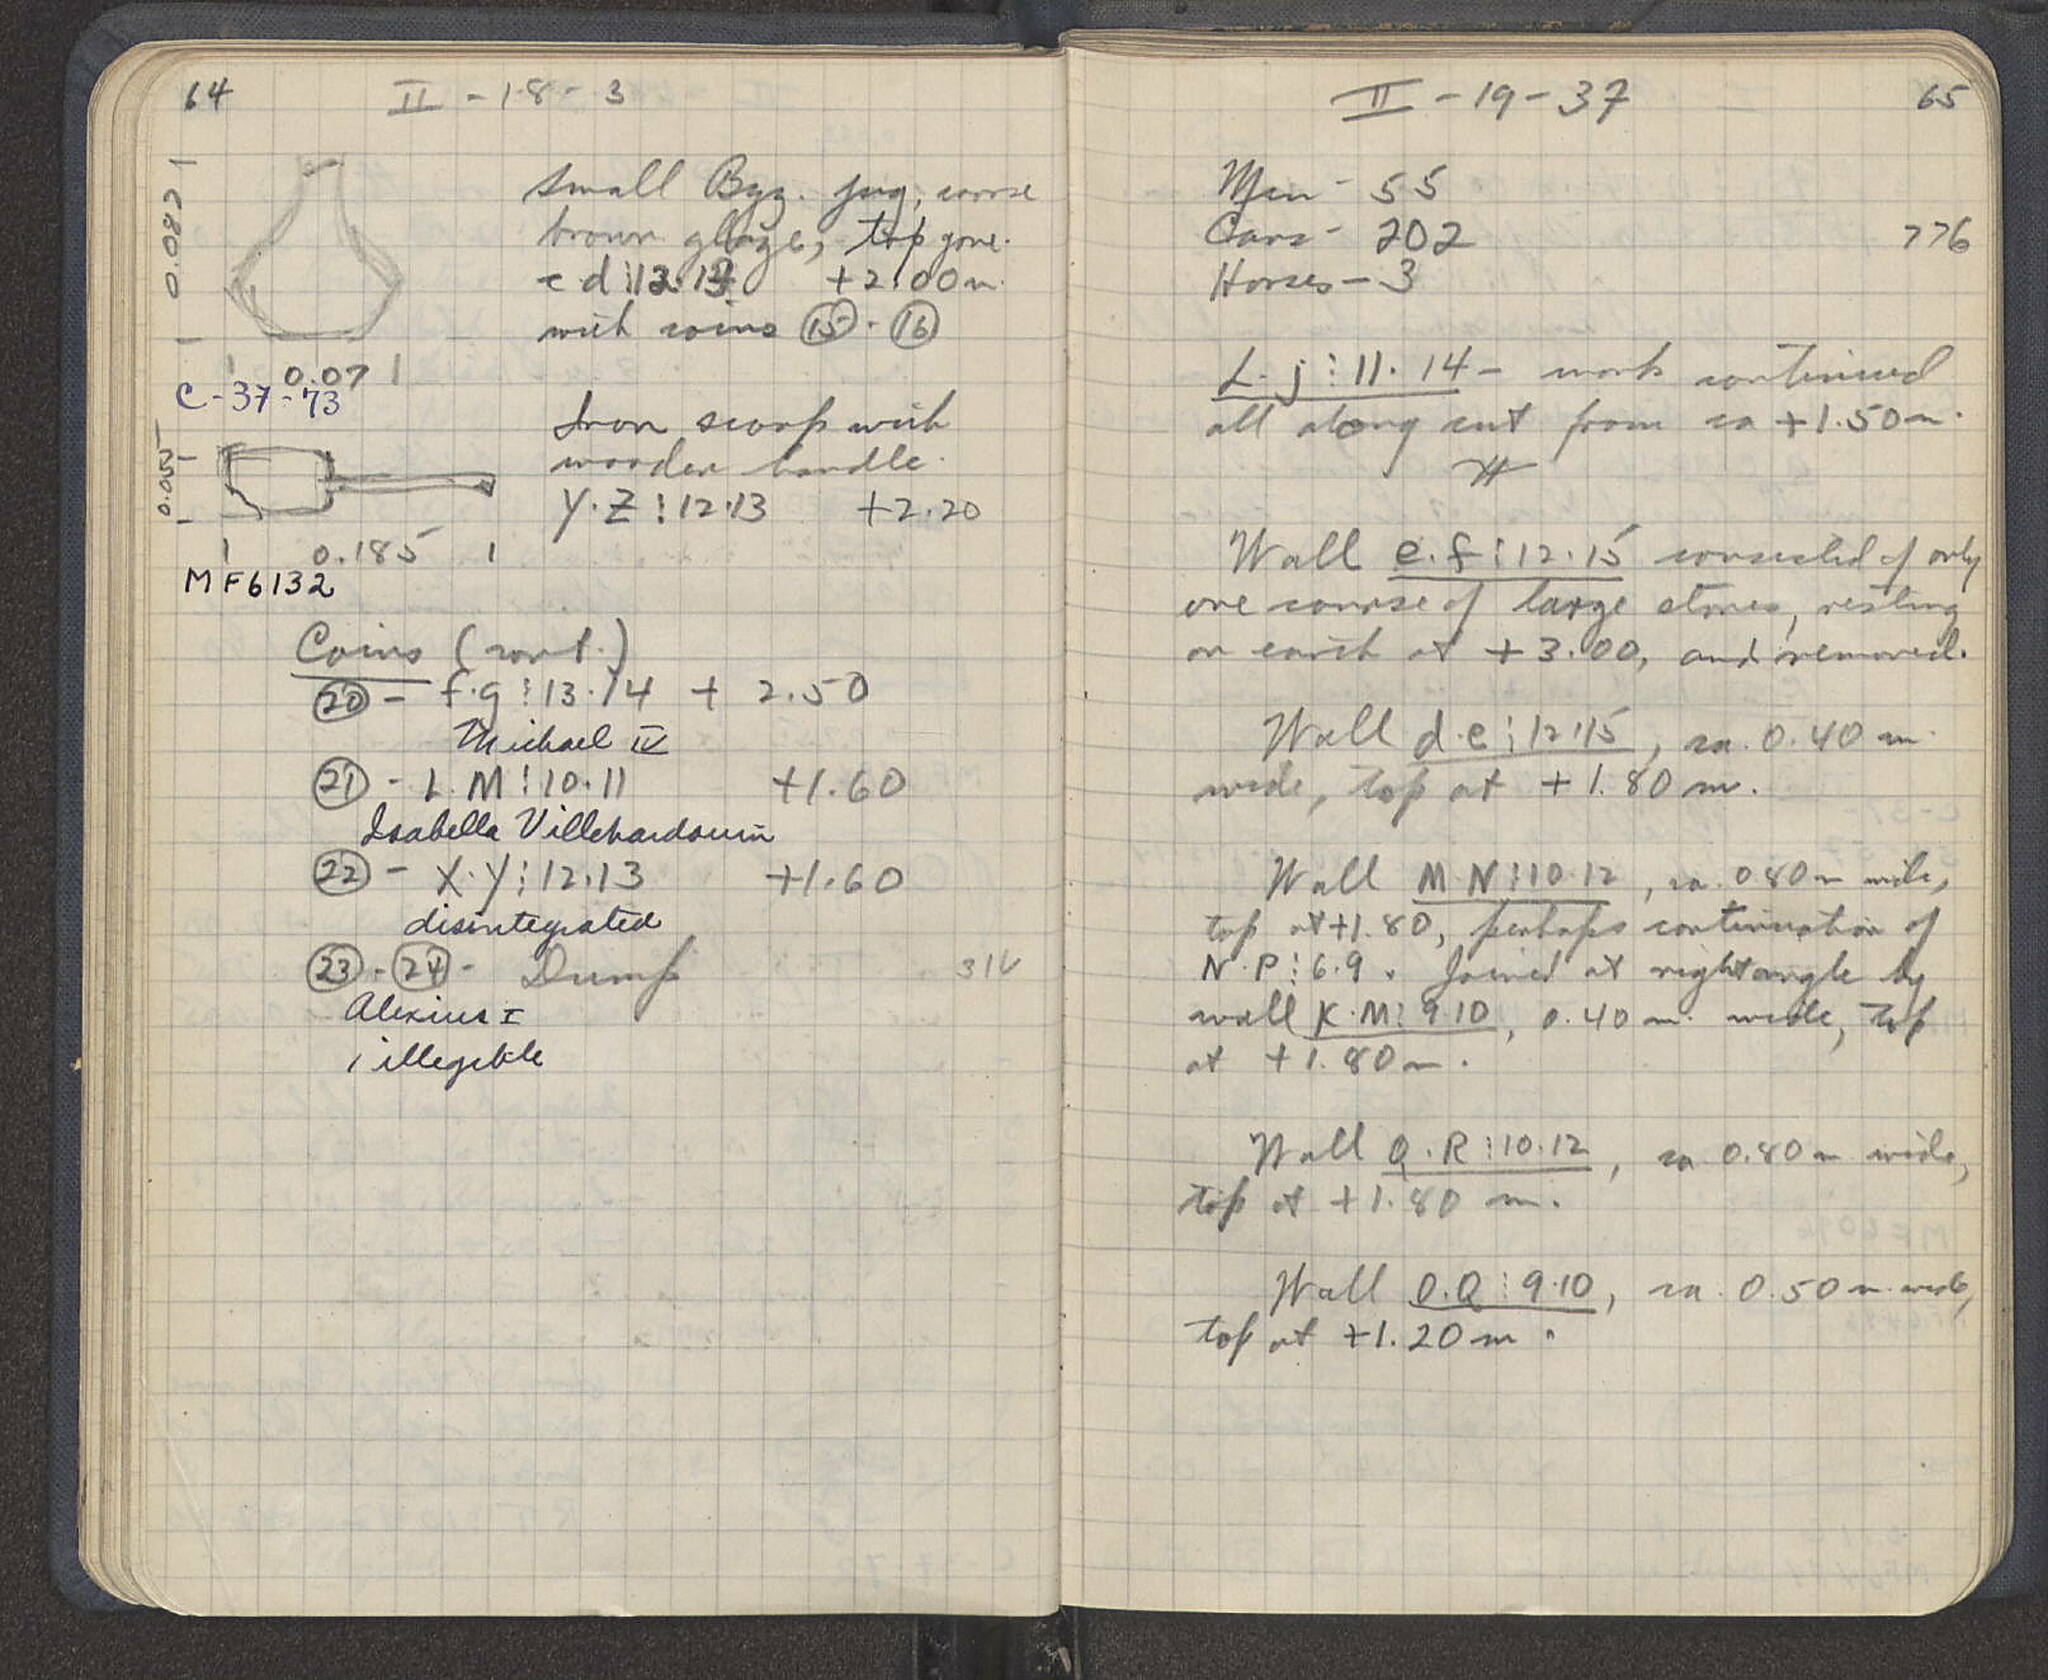 64
II - 18 - 3
0.082
small Byz. jug, coarse
brown glaze, top gone.
c d ⋮ 12.13 +2.00 m.
with coins (15) - (16)
0.07
C-37-73
Iron scoop with
wooden handle.
Y.Z ⋮ 12.13 +2.20
0.055
0.185
MF6132
Coins (cont.)
(20) - f.g ⋮ 13.14 + 2.50
Michael IV
(21) - L.M ⋮ 10.11 +1.60
Isabella Villehardouin
(22) - X.Y ⋮ 12.13 +1.60
disintegrated
(23) - (24) - Dump
Alexius I
1 illegible
II - 19 - 37
65
Men - 55
Cars - 202 776
Horses - 3
L.j ⋮ 11.14 - work continued
all along cut from ca +1.50 m.
Wall e.f ⋮ 12.15 consisted of only
one course of large stones, resting
on earth at +3.00, and removed.
Wall d.e ⋮ 12.15, ca. 0.40 m.
wide, top at +1.80 m.
Wall M.N ⋮ 10.12, ca. 0.80 m wide,
top at +1.80, perhaps continuation of
N.P ⋮ 6.9. Joined at right angle by
wall K.M ⋮ 9.10, 0.40 m. wide, top
at +1.80 m.
Wall Q.R ⋮ 10.12, ca 0.80 m wide,
top at +1.80 m.
Wall O.Q ⋮ 9.10, ca. 0.50 m. wide,
top at +1.20 m.